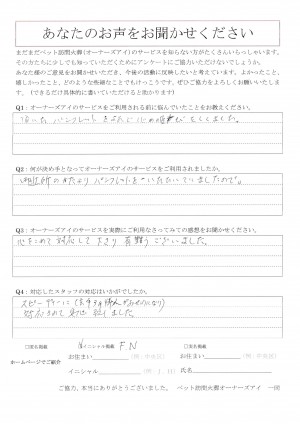 あなたのお声をお聞かせください
まだまだペット訪問火葬(オーナーズアイ)のサービスを知らない方がたくさんいらっしゃいます。
そのかたに少しでも知っていただくためにアンケートにご協力いただけないでしょうか。
あなた様のご意見をお聞かせいただき、今後の活動に反映したいと考えています。よかったこと、
嬉しかったこと、どのような些細なことでもけっこうです。ぜひご協力をよろしくお願いいたします。(できるだけ具体的に書いていただけると助かります)
Q1:オーナーズアイのサービスをご利用される前に悩んでいたことをお教えください。
パンフレット
Q2:何が決め手となってオーナーズアイのサービスをご利用されましたか。
パンフレットをいただいていましたので。
Q3:オーナーズアイのサービスを実際にご利用なさってみての感想をお聞かせください。
心をこめて対応して下さり有難うございました。
Q4:対応したスタッフの対応はいかがでしたか。
スピーディーに
対応されて
□実名掲載 イニシャル掲載 F N □実名掲載
ホームページでご紹介 お住まい (例:中央区) お住まい (例:中央区)
イニシャル (例:I.H) 氏名
ご協力、本当にありがとうございました。 ペット訪問火葬オーナーズアイ 一同